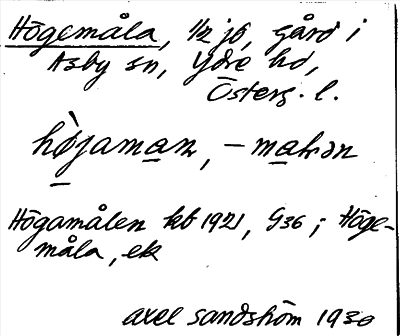 Högemåla, 1/2 jb, gård i
Asby sn, Ydre hd,
Österg. l.
Högamålen kb 1921, G36; Höge-
måla, ek
Axel Sandström 1930